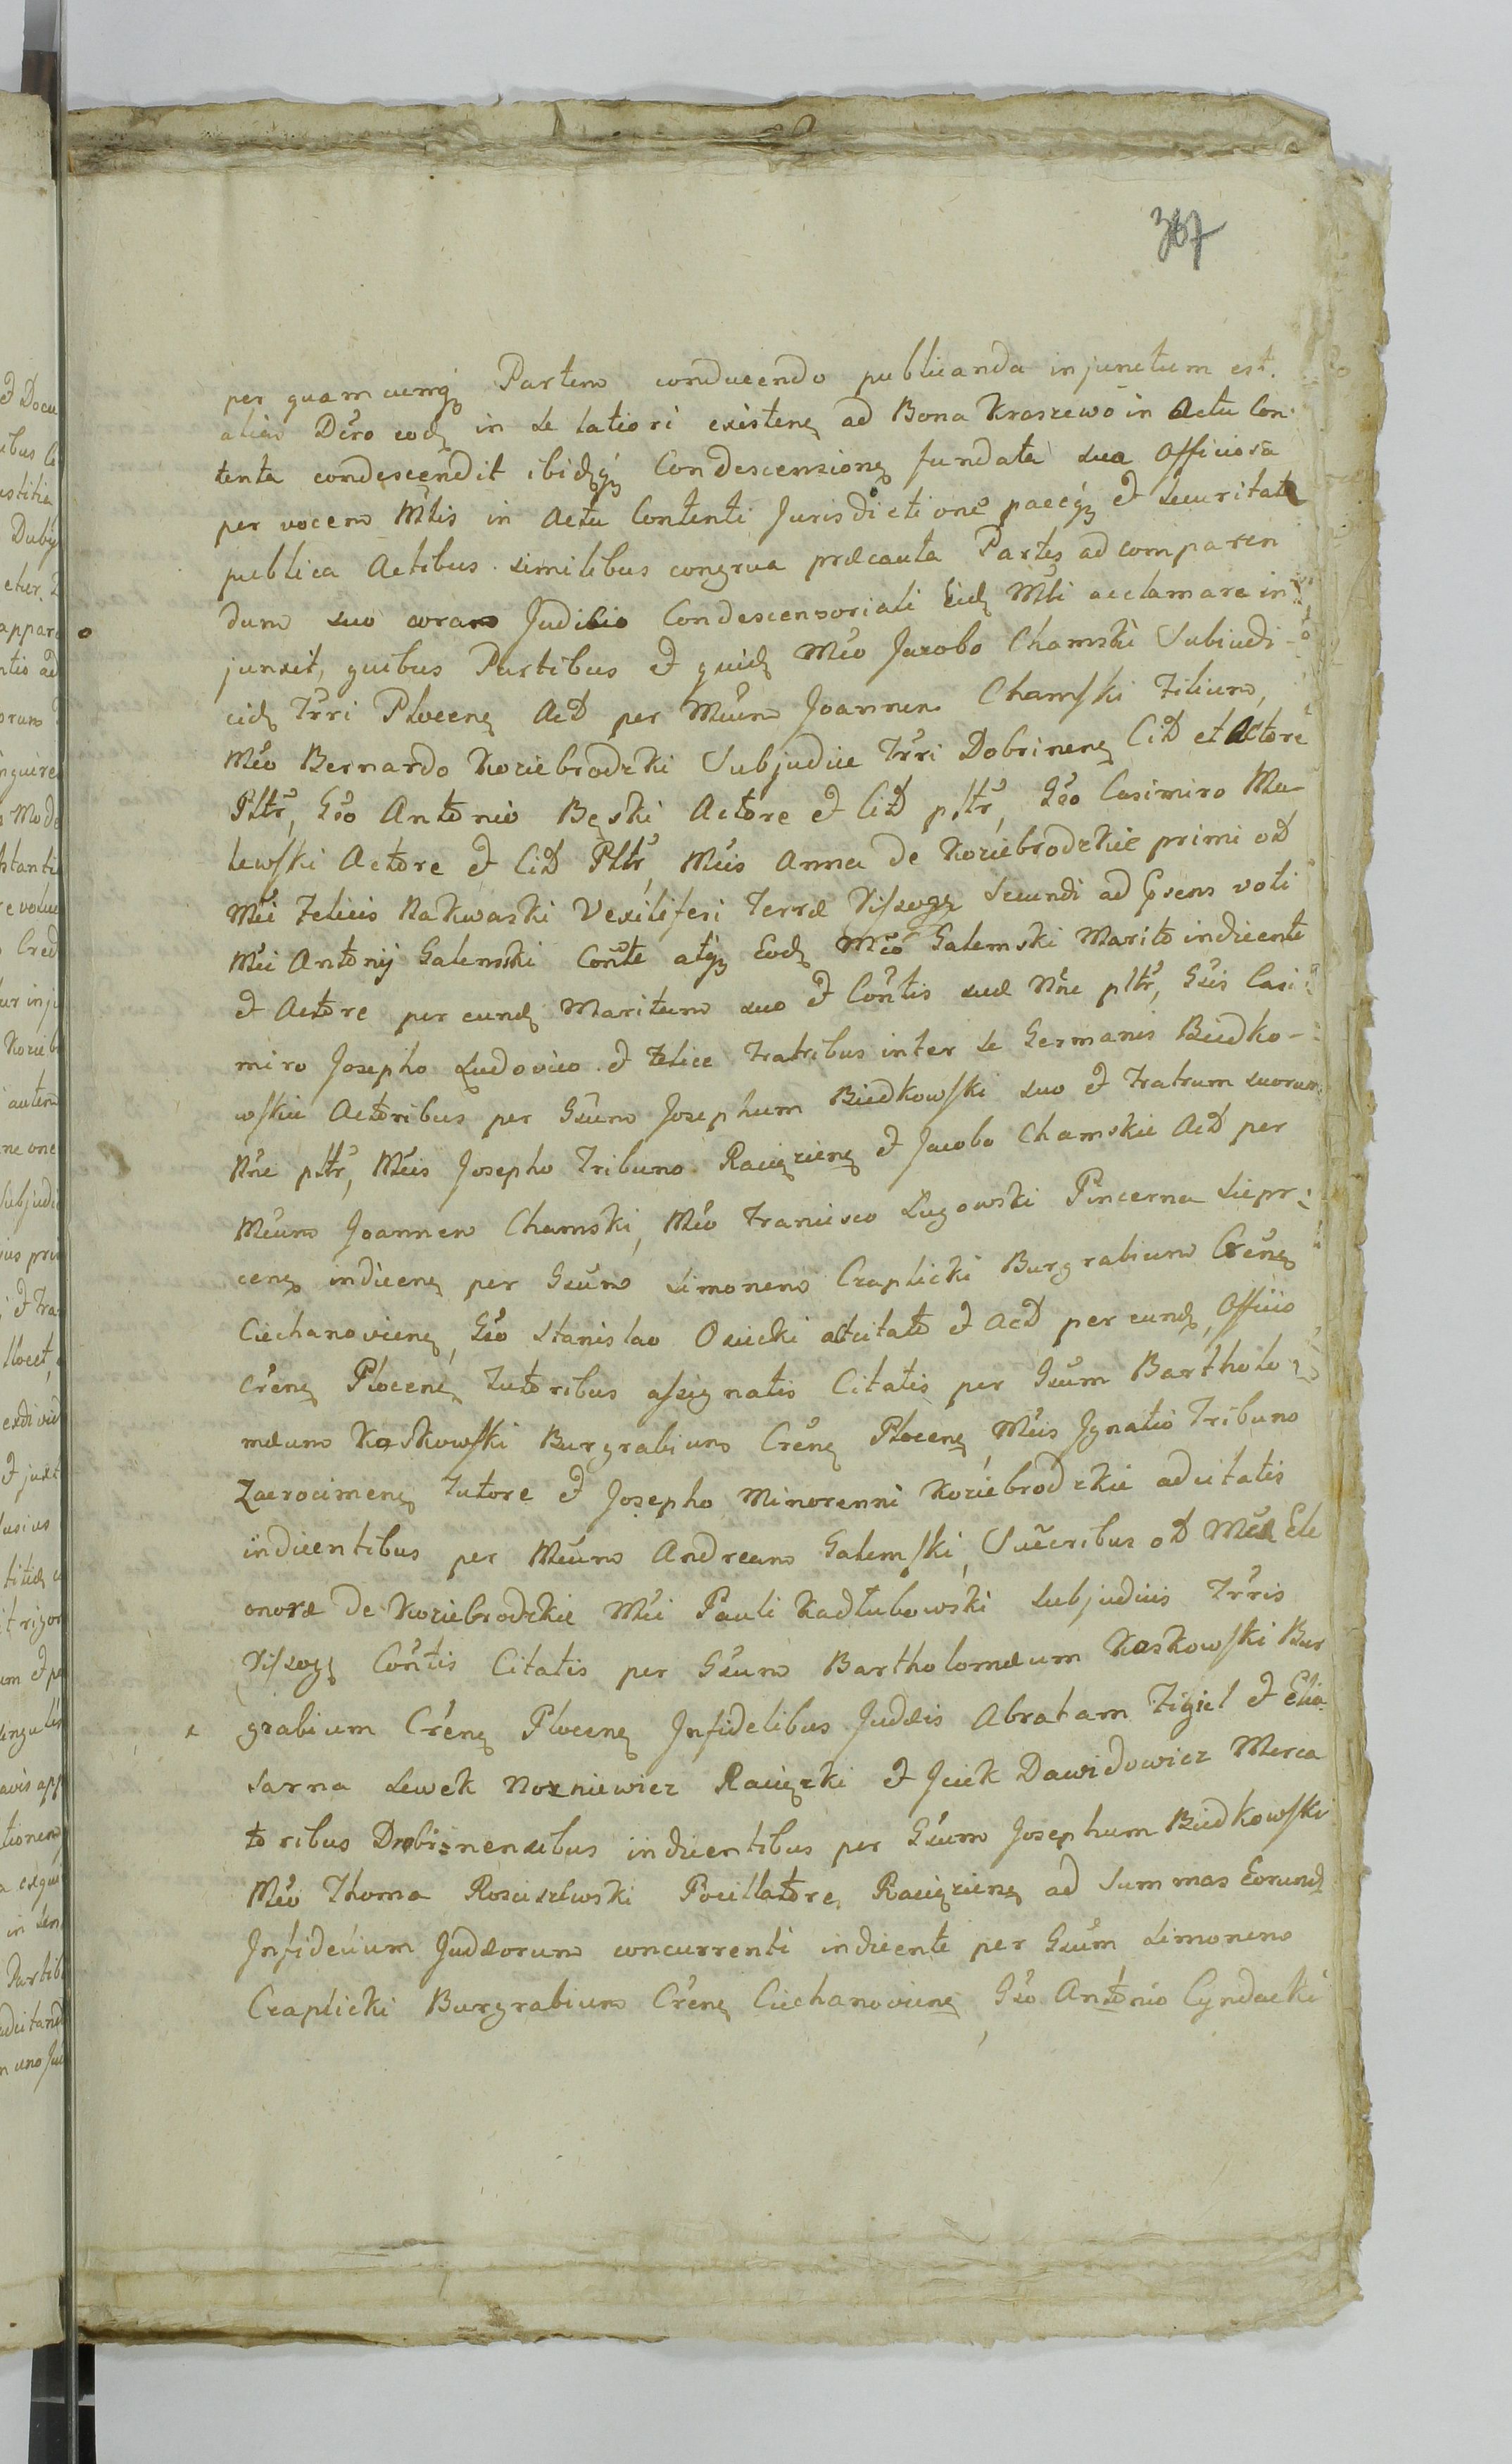 367
per quamcunqꝫ Partem conducendo publicanda injunctum est.
alias Dcro eod in se latiori existenꝫ ad Bona Kraszewo in Actu Con
tenta condescendit ibidqꝫ Condescensionꝫ fundata sua Officiosa
per vocem Mtlis in Actu Contenti Jurisdictione paceqꝫ et securitate
publica Actibus similibus congrua præcauta Partes ad comparen
dum suo coram Judicio Condescensoriali Eid Mtli acclamare in
junxit, quibus Partibus et quid Mco Jacobo Chamski Subiudi-
cid Trri Plocenꝫ Act per Mcum Joannem Chamski Filium,
Mco Bernardo Koziebrodzki Subjudice Trri Dobrinenꝫ Cit et Actore
Pltr, Gso Antonio Bęski Actore et Cit pltr, Gso Casimiro Ma-
lewski Actore et Cit Pltr, Mcis Anna de Koziebrodzkie primi ot
Mci Felicis Nakwaski Vexiliferi Terræ Vissogꝫ secundi ad præsens voti
Mci Antonij Galemski Conte atqꝫ Eod Mco Galemski Marito indicente
et Actore per eund Maritum suo et Contis suæ Nne pltr, Gsis Casi
miro Josepho Ludovico et Felice Fratribus inter se Germanis Biedko-
wskie Actoribus per Gsum Josephum Biedkowski suo et Fratrum suorum
Nne pltr, Mcis Josepho Tribuno Raciązienꝫ et Jacobo Chamskie Act per
Mcum Joannem Chamski, Mco Francisco Lugowski Pincerna Siepr-
cenꝫ indicenꝫ per Gsum Simonem Czaplicki Burgrabium Crenꝫ
Ciechanovienꝫ, Gso Stanislao Osiecki adcitato et Act per eund, Officio
Crenꝫ Plocenꝫ Tutoribus assignatis Citatis per Gsum Bartholo
mæum Koskowski Burgrabium Crenꝫ Plocenꝫ, Mcis Ignatio Tribuno
Zacrocimenꝫ Tutore et Josepho Minorenni Koziebrodzkie adcitatis
indicentibus per Mcum Andream Galemski, Succribus ot Mcæ Ele
onoræ de Koziebrodzkie Mci Pauli Kadłubowski Subjudicis Trris
Vissogꝫ Contis Citatis per Gsum Bartholomæum Koskowski Bur
grabium Crenꝫ Plocenꝫ Infidelibus Judæis Abraham Figiel et Elia
sarna Lewek Nozniewicz Raciązki et Jcek Dawidowicz Merca
toribus Drobinensibus indicentibus per Gsum Josephum Biedkowski
Mco Thoma Rosciszewski Pocillatore Raciązienꝫ ad Summas Eorund
Infidelium Judæorum concurrenti indicente per Gsum Simonem
Czaplicki Burgrabium Crenꝫ Ciechanovienꝫ, Gso Antonio Cyndacki